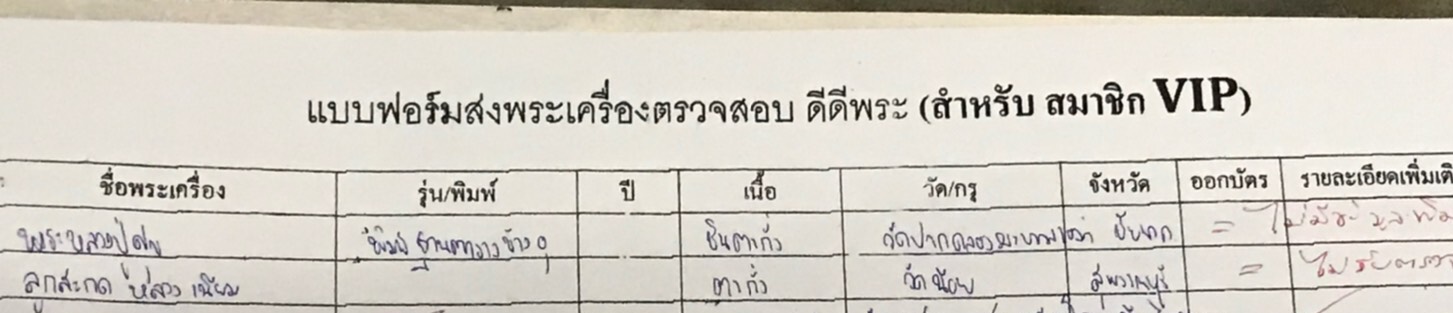 แบบฟอร์มส่งพระเครื่องตรวจสอบ ดีดีพระ (สำหรับ สมาชิก VIP)
ชื่อพระเครื่อง รุ่น/พิมพ์ ปี เนื้อ วัด/กรุ จังหวัด ออกบัตร รายละเอียดเพิ่มเติ
พระหลวงปู่ศุข พิมพ์ ชินตะกั่ว วัดปากคลองมะขามเฒ่า ชัยนาท =
ลูกสะกด หลวง เนียม ตะกั่ว วัดน้อย สุพรรณบุรี = ไม่รับตรวจ